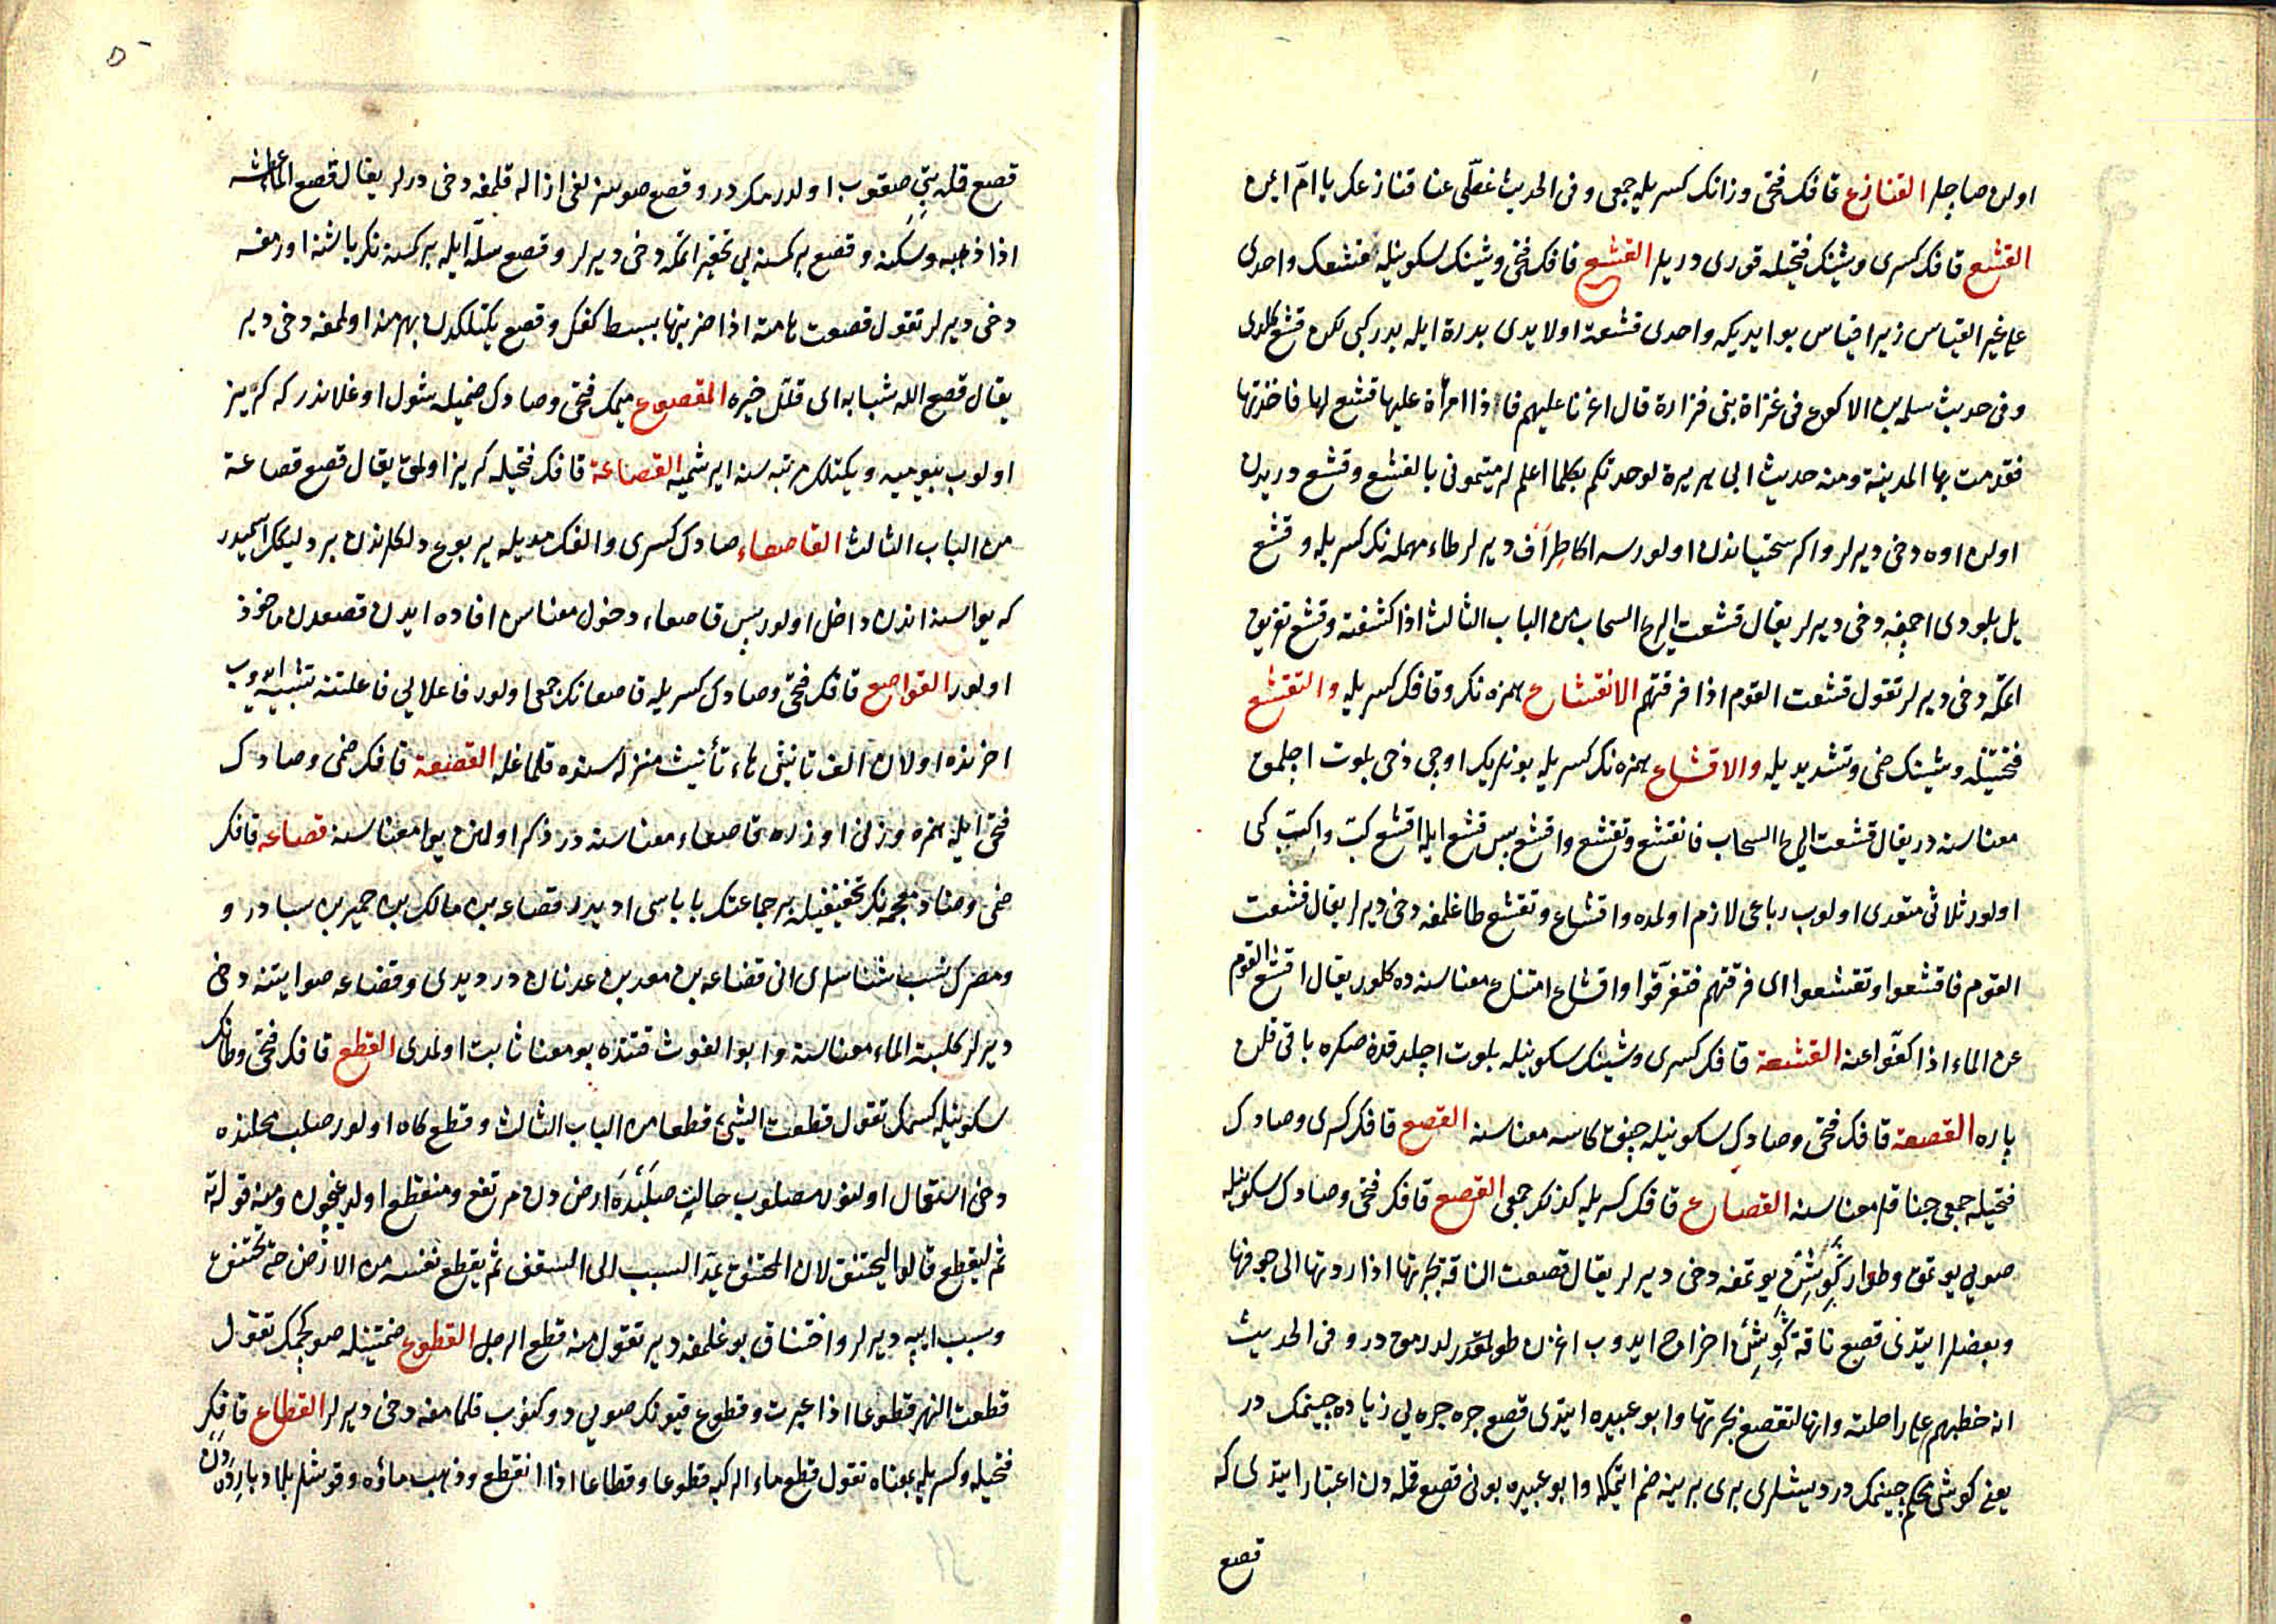 اولن صاچلر القنازع قافك فتحى وزانك كسريله جمعى وفى الحديث غطّى عنا قنازعك يا امّ ايمن
القشع قافك كسرى وشينك فتحيله قورى دريلر القشع قافك فتحى وشينك سكونيله قشعك واحدى
على غير القياس زيرا قياس بو ايديكه واحدى قشعة اولايدى بدرة ايله بدر كبى لكن قشع كلدى
وفى حديث سلمه بن الاكوع فى غزاة بنى فزارة قال اغرنا عليهم فاذا امرأة عليها قشع لها فاخذتها
فقدمت بها المدينة ومنه حديث ابى هريرة لو حدثتكم بكل ما اعلم لرميتمونى بالقشع وقشع دريدن
اولن اوه دخى ديرلر واكر سختياندن اولورسه اكا طِرَاف ديرلر طاء مهمله نك كسريله وقشع
يل بلودى اچمغه دخى ديرلر يقال قشعت الريح السحاب من الباب الثالث اذا كشفته وقشع تفريق
اتمكه دخى ديرلر تقول قشعت القوم اذا فرقتهم الانقشاع همزه نك وقافك كسريله والتقشع
فتحتيله وشينك ضمى وتشديديله والاقشاع همزه نك كسريله بونلرك اوچى دخى بلوت اچلمق
معناسنه در يقال قشعت الريح السحاب فانقشع وتقشع واقشع پس قشع ايله اقشع كبّ واكبّ كبى
اولور ثلاثى متعدى اولوب رباعى لازم اولمده واقشاع وتقشع طاغلمغه دخى ديرلر يقال قشعت
القوم فاقشعوا وتقشعوا اى فرقتهم فتفرّقوا واقشاع امتناع معناسنه ده كلور يقال اقشع القوم
عن الماء اذا كفّوا عنه القشعة قافك كسرى وشينك سكونيله بلوت اچلدقدن صكره باقى قلن
پاره القصعة قافك فتحى وصادك سكونيله چنق كاسه معناسنه القصع قافك كسرى وصادك
فتحيله جمعى چناقلر معناسنه القصاع قافك كسريله كذلك جمعى القصع قافك فتحى وصادك سكونيله
صويى يوتمق وطوار كَوِيشِن يوتمغه دخى ديرلر يقال قصعت الناقة بجرتها اذا ردتها الى جوفها
وبعضلر ايتدى قصع ناقة كَوِيشِن اخراج ايدوب اغزن طولدرمق در وفى الحديث
انه خطبهم على راحلته وانها لتقصع بجرتها وابو عبيده ايتدى قصع جره جره يى زياده چينمك در
يعنى كوشى محكم چينمك در ديشلرى برى برينه ضم اتمكله وابو عبيده بونى قصع قمله دن اعتبار ايتدى كه
قصع
قصع قمله بتِى صقوب اولدرمك در وقصع صوسزلغى ازاله قلمغه دخى درلر يقال قصع الماء عطشه
اذا ذهبه وسكنه وقصع بر كمسنه يى تحقير اتمكه دخى ديرلر وقصع سلّه ايله بر كمسنه نك باشنه اورمغه
دخى ديرلر تقول قصعت هامته اذا ضربتها ببسط كفك وقصع يكتلكدن بهرمند اولمغه دخى دير
يقال قصع الله شبابه اى قلل خيره المقصوع ميمك فتحى وصادك ضميله شول اوغلاندر كه كريز
اولوب بيوميه ويكتلك مرتبه سنه ايرشميه القصاعة قافك فتحيله كريز اولمق يقال قصع قصاعة
من الباب الثالث القاصعاء صادك كسرى والفك مديله يربوع دلكلرندن بر دليكك اسميدر
كه يواسنه اندن داخل اولور پس قاصعاء دخول معناسن افاده ايدن قصعدن ماخوذ
اولور القواصع قافك فتحى وصادك كسريله قاصعانك جمعى اولور فاعلالى فاعلتنه تشبيه ايدوب
اخرنده اولان الف تانيثى هاء تأنيث منزله سنده قلماغله القصعة قافك ضمى وصادك
فتحى ايله همزه وزنى اوزره قاصعاء معناسنه در ذكر اولنن يوا معناسنه قضاعه قافك
ضمى وضاد معجمه نك تخفيفيله بر جماعتك باباسى اديدر قضاعه بن مالك بن حمير بن سبا در و
ومضرك نسب شناسلرى انى قضاعه بن معد بن عدنان در ديدى وقضاعه صو ايتنه دخى
ديرلر كلبة الماء معناسنه وابو الغوث قتنده بو معنا ثابت اولمدى القطع قافك فتحى وطانك
سكونيله كسمك تقول قطعت الشئ قطعا من الباب الثالث وقطع كاه اولور صلب محلنده
دخى استعمال اولنور مصلوب حالت صلبنده ارض دن مرتفع ومنقطع اولديغيچون ومنه قوله تع
ثم ليقطع قالوا ليختنق لان المختنق يمدّ السبب الى السقف ثم يقطع نفسه من الارض حتى يختنق
وسبب ايپه ديرلر واختناق بوغلمغه دير تقول منه قطع الرجل القطوع ضمتيله صو كچمك تقول
قطعت النهر قطوعا اذا عبرت وقطوع قيونك صويى دوكنوب قلمامغه دخى ديرلر القطاع قافك
فتحيله وكسريله بمعناه تقول قطع ماء الركية قطوعا وقطاعا اذا انقطع وذهب ماؤه وقوشلر بلاد بارده دن